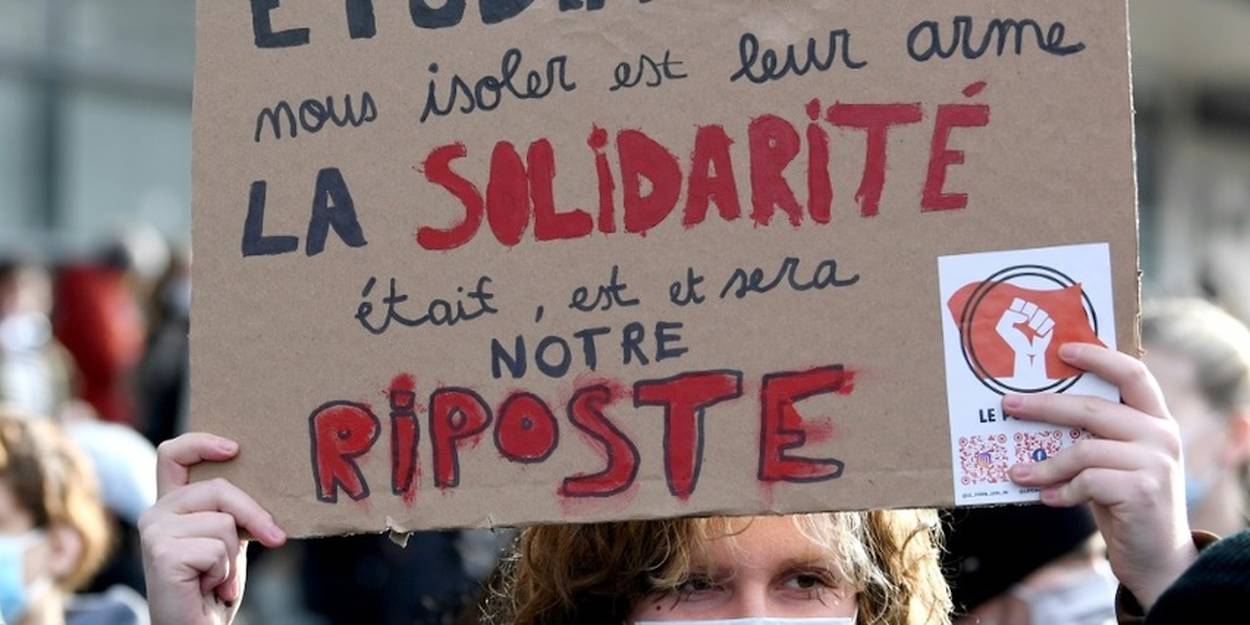 nous isoler est leur arme
LA SOLiDARiTÉ
était, est et sera
NOTRE
RiPOSTE
LE